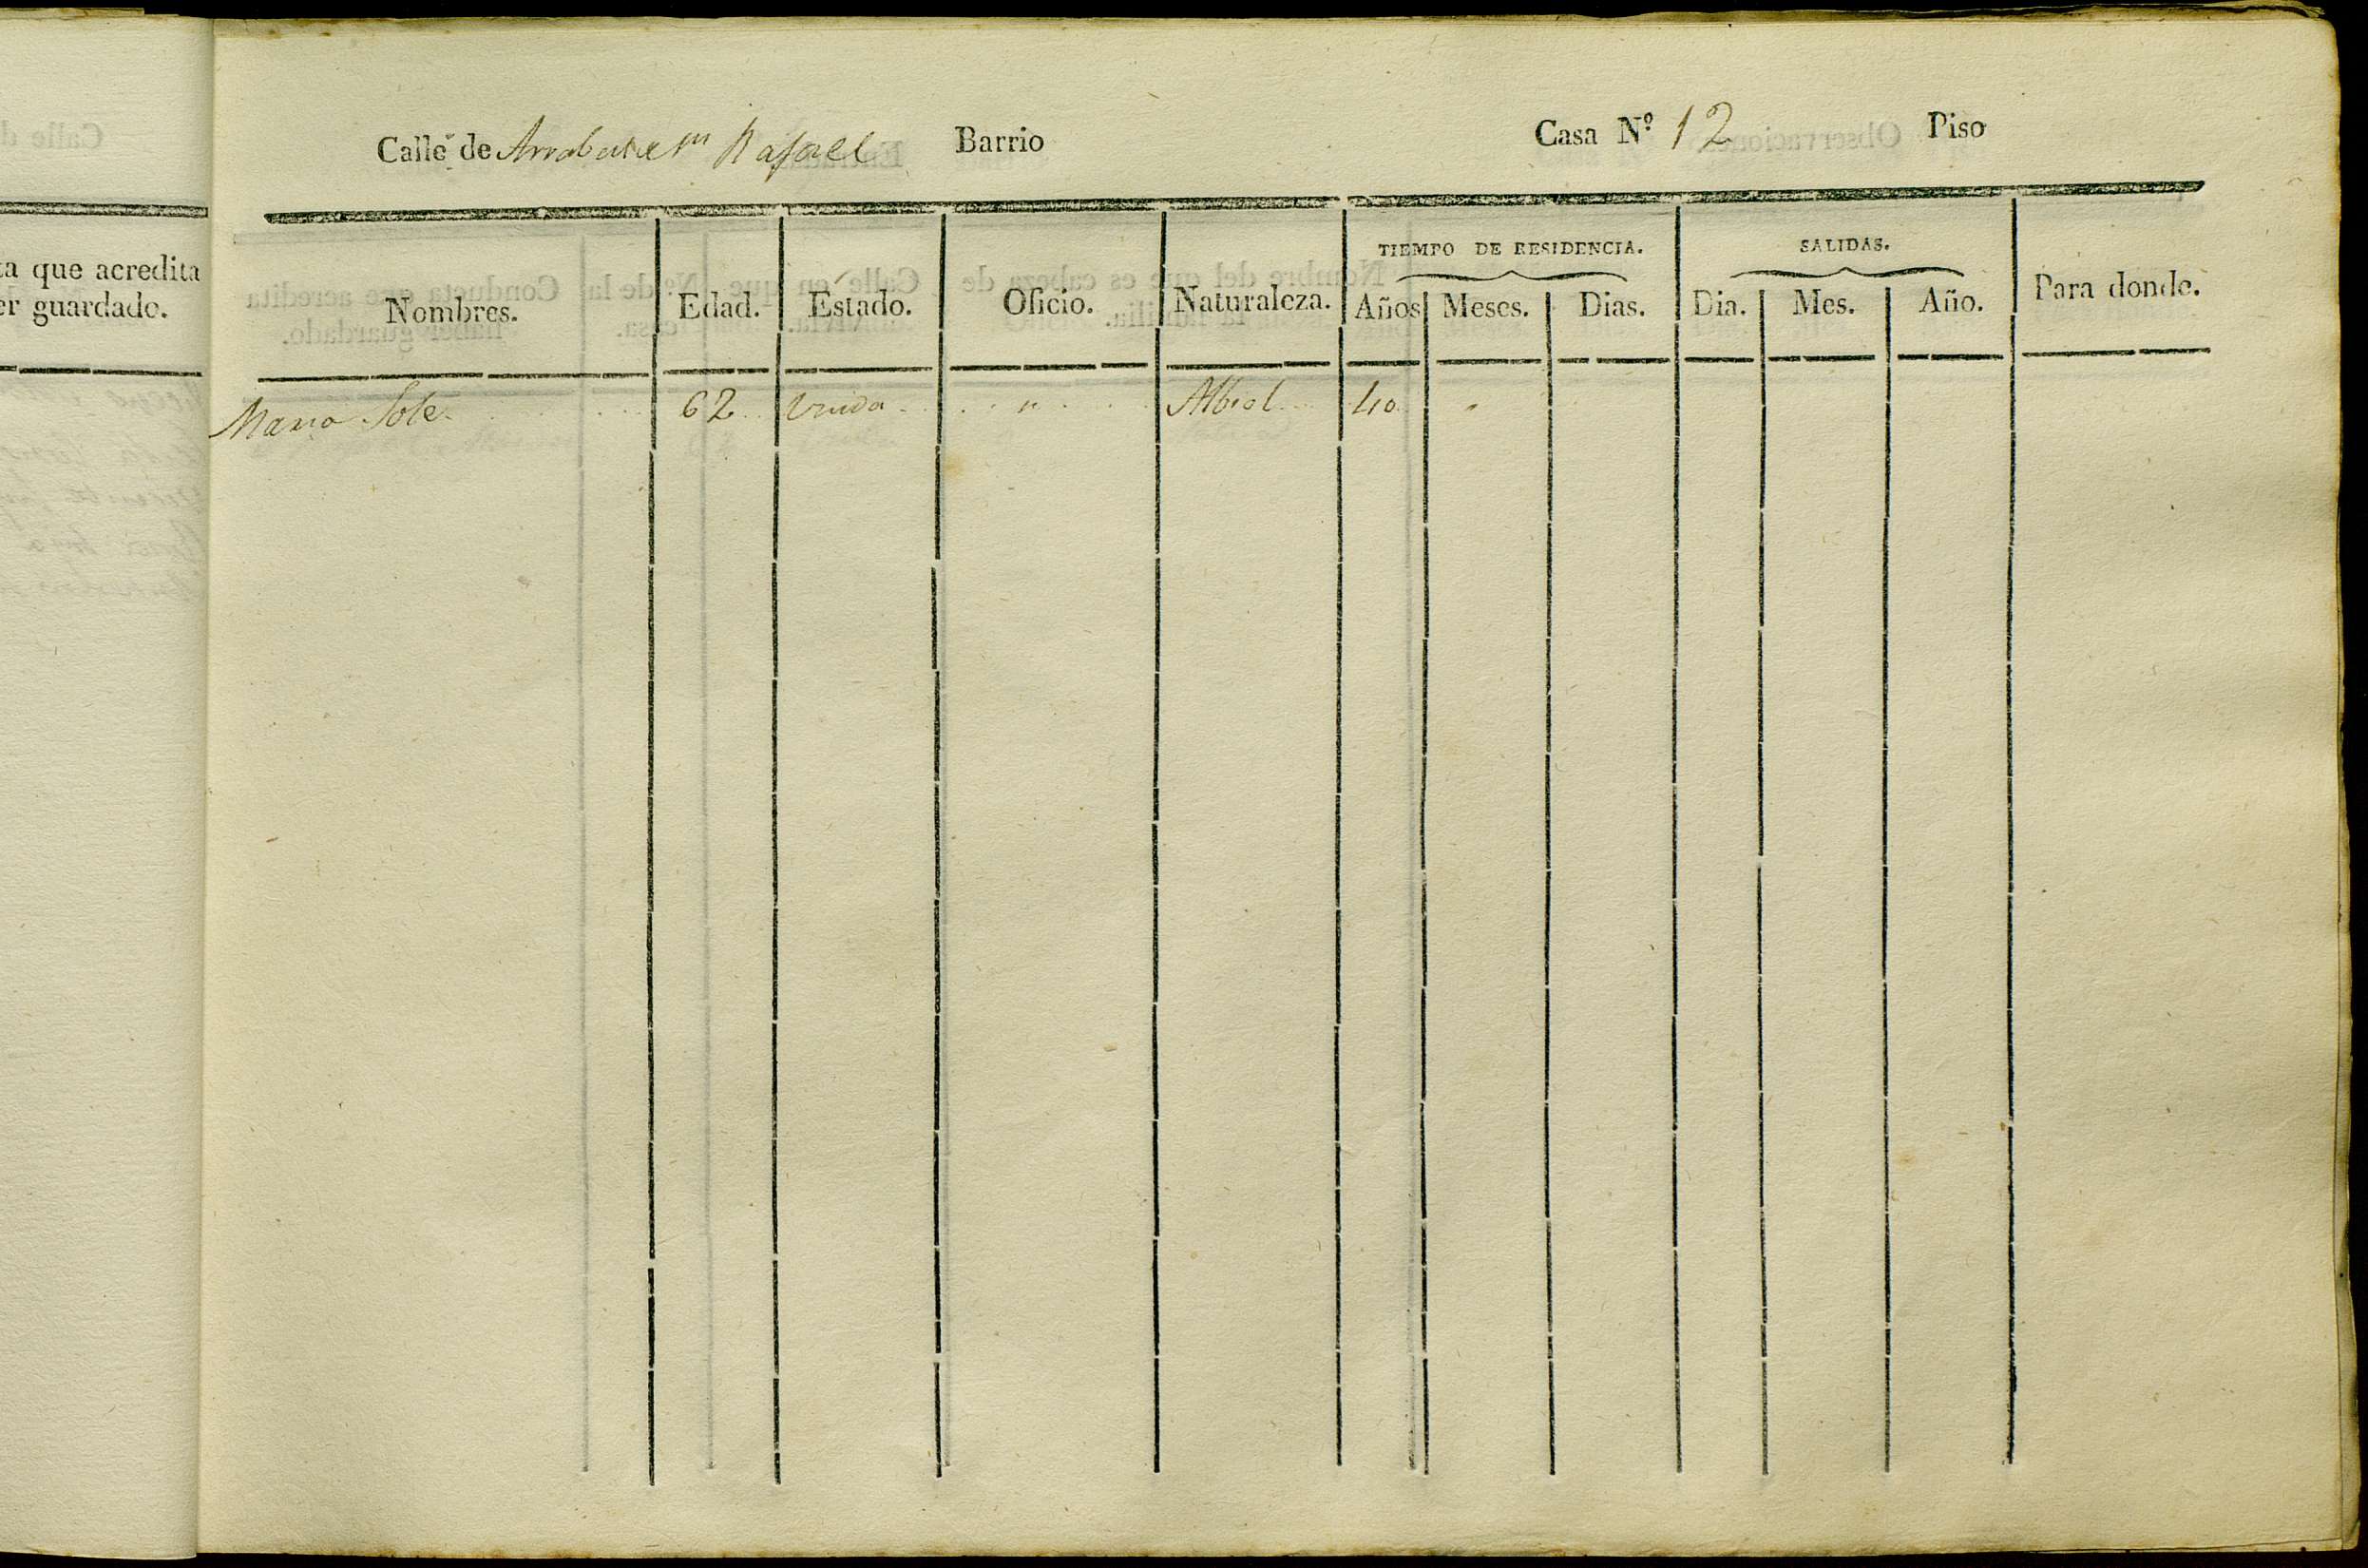 ta que acredita
er guardado.
Calle de Arrabal Sn Rafael Barrio Casa Nº 12 Piso
TIEMPO DE RESIDENCIA. SALIDAS.
Nombres. Edad. Estado. Oficio. Naturaleza. Años Meses. Dias. Dia. Mes. Año. Para donde.
Maria Sole 62 Viuda " Albiol 40 "